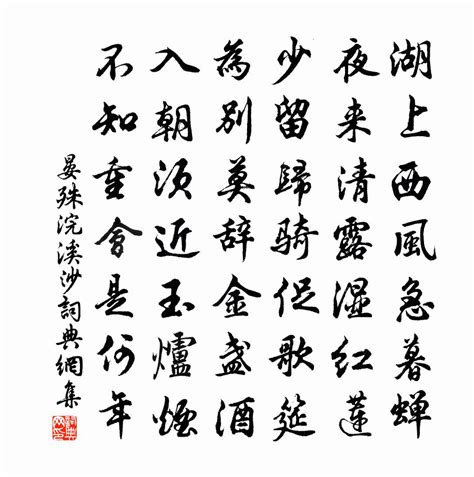 湖上西風急暮蟬
夜来清露湿紅蓮
少留歸騎促歌筵
為別莫辞金盏酒
入朝須近玉爐煙
不知重會是何年
晏殊浣溪沙詞典網集